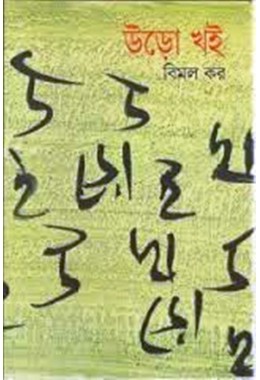 উড়ো খই
বিমল কর
উ ড়
ই ড়ো ই খ
উ খ উ
ড়ো ই